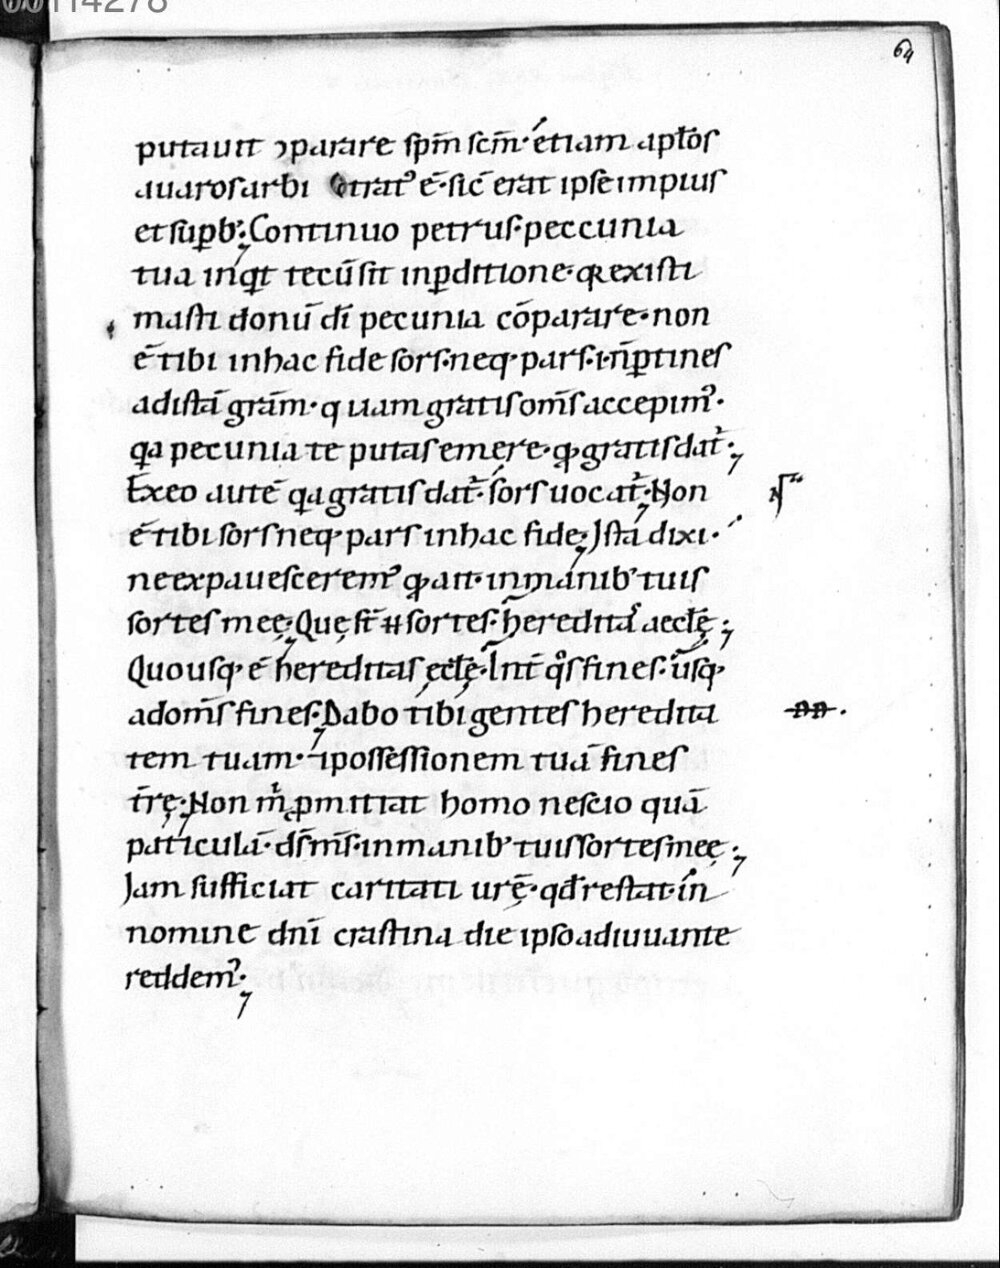 00114278
64
putauit ꝯparare sp̄m sc̄m· etiam apłos
auaros arbitratꝰ ē· sic̄ erat ipse impius
et suꝑbꝰ; Continuo petrus· peccunia
tua inqͥt tecū sit inꝑditione· qꝛ existi
masti donū dī pecunia cōparare· non
ē tibi in hac fide sors· neqꝫ pars· ⁊ n̄ ꝑtines
ad istā grām· quam gratis om̄s accepimꝰ·
qͣ pecunia te putas emere· ꝙ gratis dat᷑;
Exeo autē qͥa gratis dat᷑· sors uocat᷑; Non
ē tibi sors neqꝫ pars in hac fide; Ista dixi·
ne expauesceremꝰ ꝙ ait· in manibꝰ tuis
sortes meę; Quę st̄ ħ sortes· hereditaˢ aecłę;
Quousqꝫ ē hereditas ęcłę· Int̄ qͦs fines· usqꝫ
ad om̄s fines; Dabo tibi gentes heredita
tem tuam· ⁊ possessionem tuā fines
t̄rę; Non m̄ ꝑmittat homo nescio quā
paticulā· ds̄ m̄s· in manibꝰ tuis sortes meę;
Jam sufficiat caritati urę̄· qđ restat· in
nomine dn̄i crastina die ipso adiuuante
reddemꝰ;